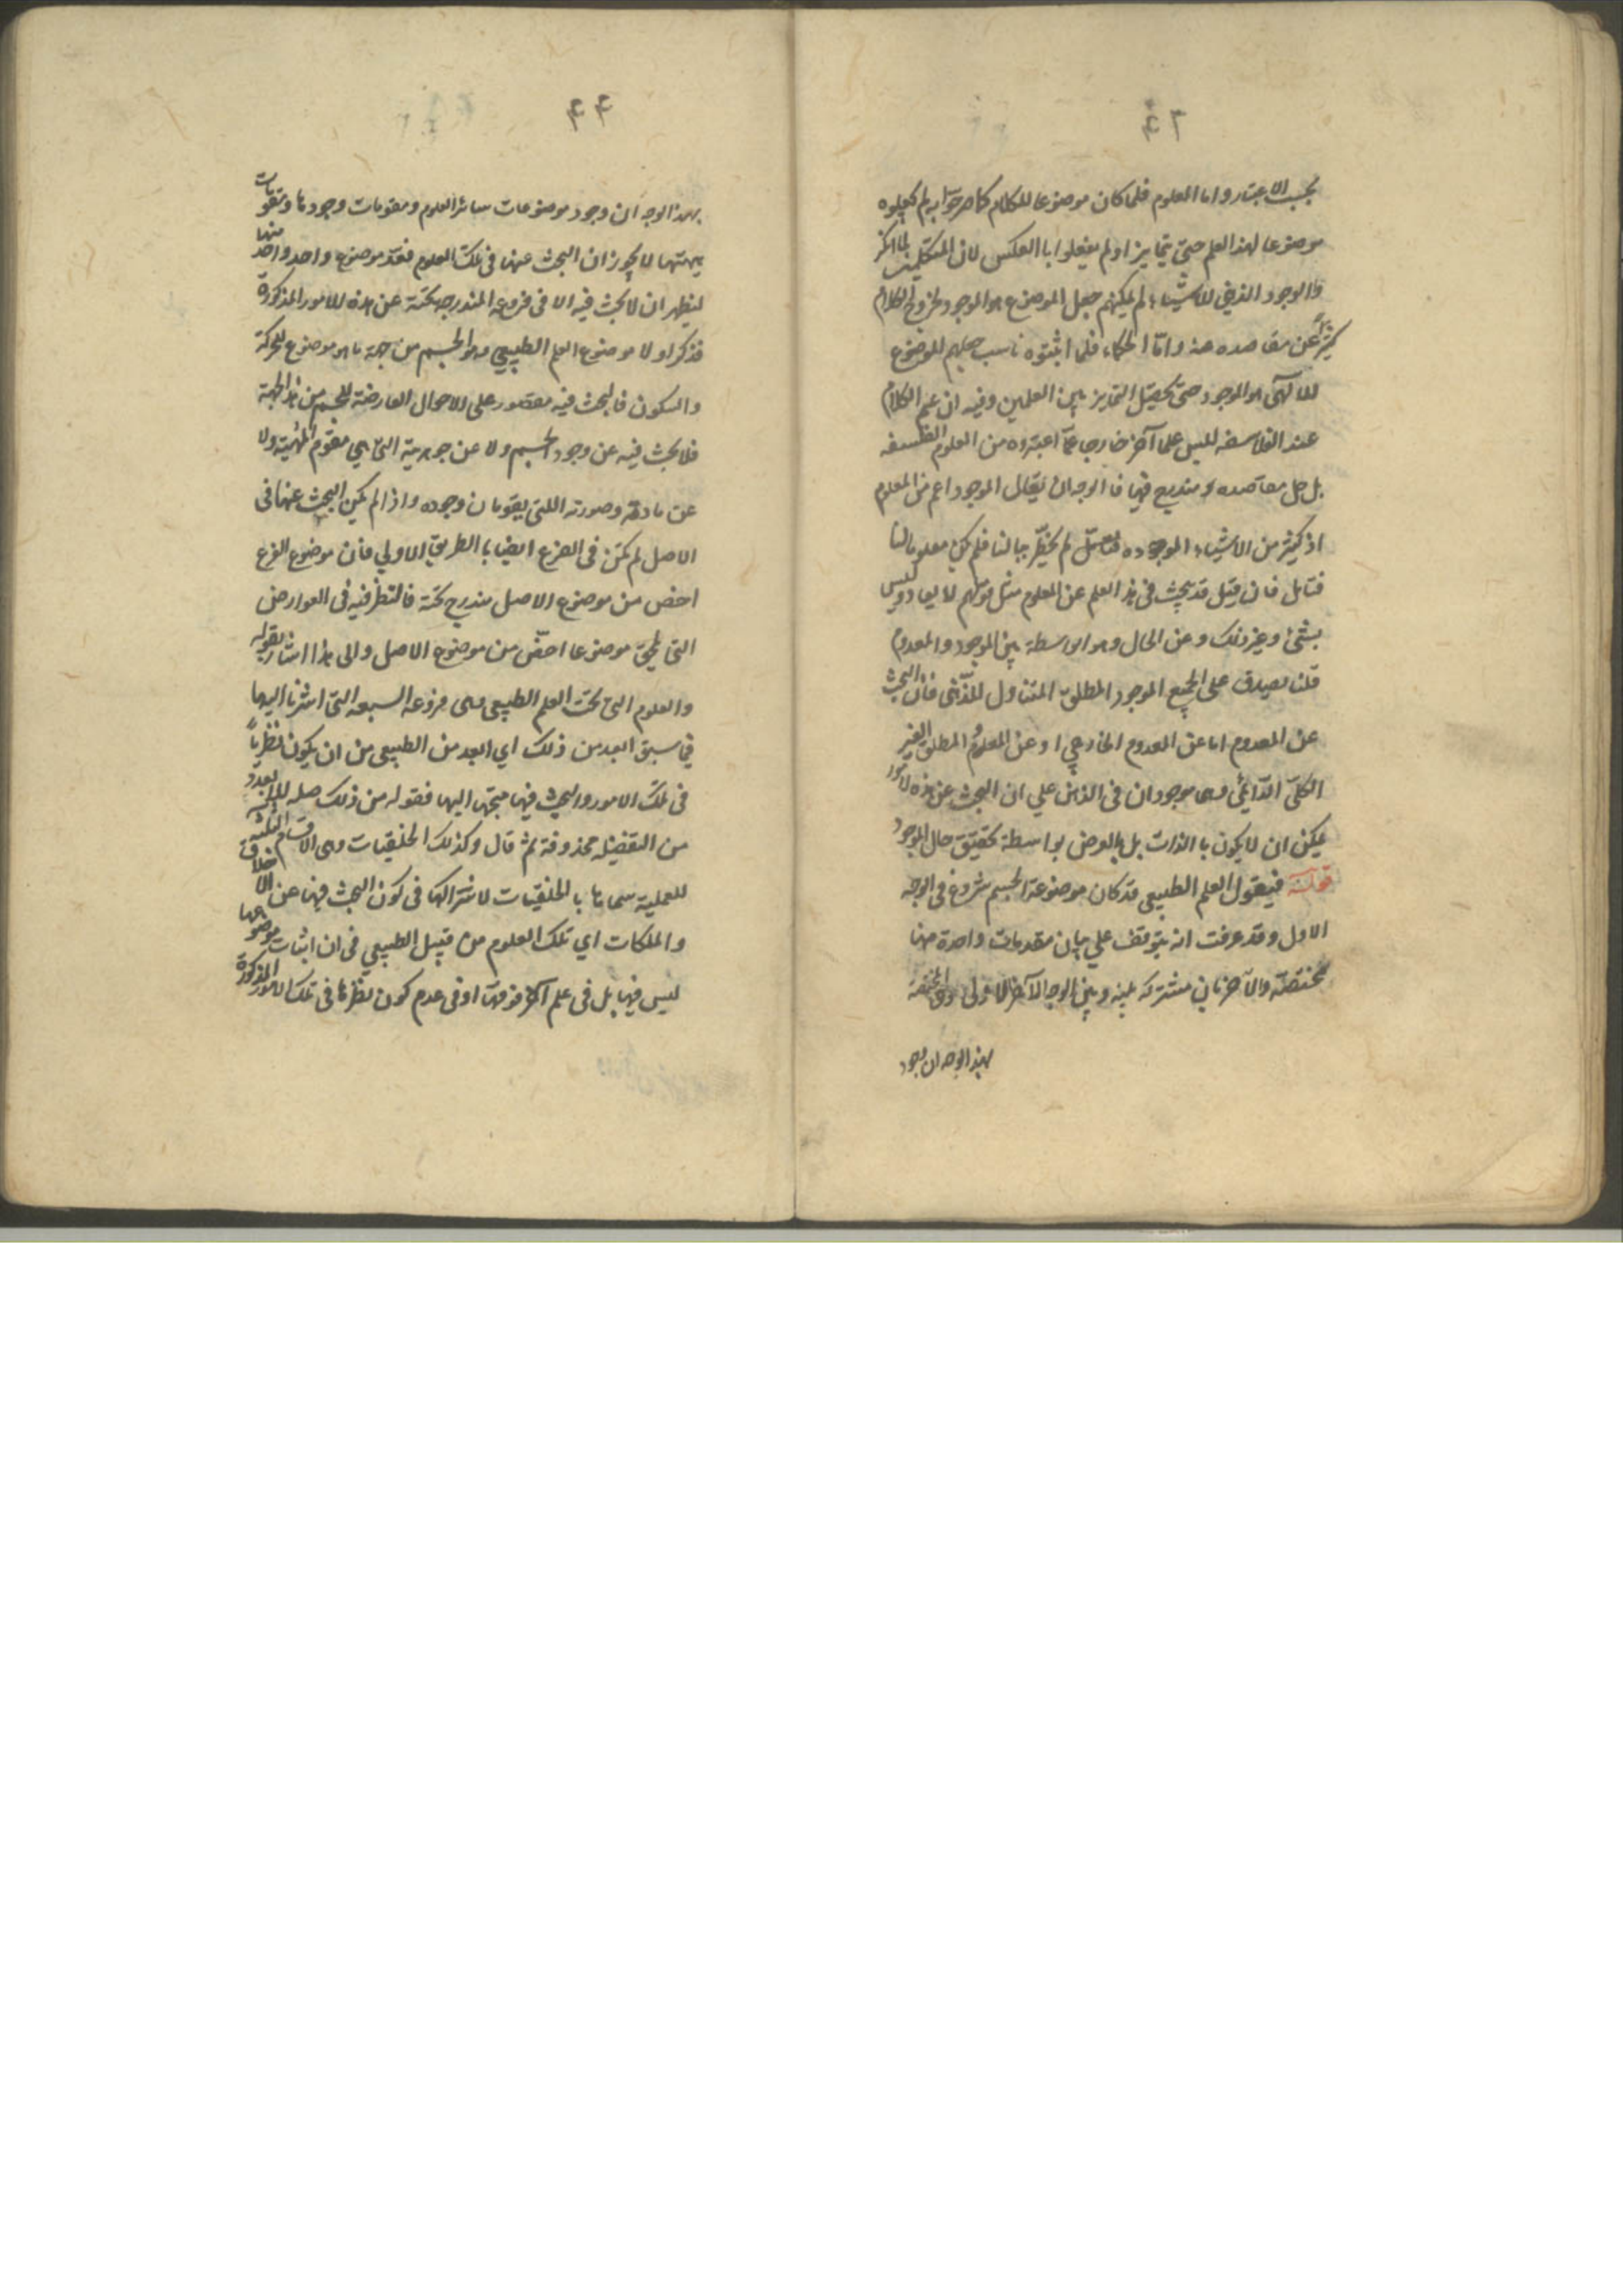 ٤٣
بحسب الاعتبار واما المعلوم فلما كان موضوعا للكلام كما صرحوا به لم يجعلوه
موضوعا لهذا العلم حتى يتمايزا ولم يفعلوا بالعكس لان المتكلمين لما انكر
والوجود الذهني للاشياء لم يمكنهم جعل الموضوع هو الموجود لخروج الكلام
كثيرا عن مقاصده عنه واما الحكماء فلما اثبتوه ناسب جعلهم الموضوع
للالهى هو الموجود حتى يحصل التمايز بين العلمين وفيه ان علم الكلام
عند الفلاسفه ليس علما آخر خارجا عما اعتبروه من العلوم الفلسفه
بل جل مقاصده مندرج فيها فالوجه ان يقال الموجود اعم من المعلوم
اذ كثير من الاشياء الموجوده لم يخطر ببالنا فلم يكن معلوما لنا
فتامل فان قيل قد يبحث فى هذا العلم عن المعلوم مثل قولهم لا يعاد وليس
بشئ وغير ذلك وعن الحال وهو الواسطة بين الموجود والمعدوم
قلنا يصدق على الجميع الموجود المطلق المتناول للذهنى فان البحث
عن المعدوم اما عن المعدوم الخارجي او عن المعدوم المطلق الغير
الكلى الدائمي وهما موجودان فى الذهن علي ان البحث عن هذه الامور
يمكن ان لا يكون بالذات بل بالعرض بواسطة تحقيق حال الموجود
قوله فيقول العلم الطبيعى قد كان موضوعه الجسم شروع فى الوجه
الاول وقد عرفت انه يتوقف علي بيان مقدمات واحدة منها
مختصة والآخريان مشتركه بينه وبين الوجه الآخر الاولى وهى المختصة
بهذا الوجه ان وجود
٤٤
بهذا الوجه ان وجود موضوعات سائر العلوم ومقومات وجودها ومقومات
مهيتها لا يجوز ان البحث عنها فى تلك العلوم فعد موضوع واحد واحد منها
ليظهر ان لا يبحث فيه الا فى فروعه المندرجه تحته عن هذه الامور المذكورة
فذكر اولا موضوع العلم الطبيعي وهو الجسم من جهة ما هو موضوع للحركة
والسكون فالبحث فيه مقصور على الاحوال العارضة للجسم من هذه الجهة
فلا بحث فيه عن وجود الجسم ولا عن جوهرية التى هي مقوم المهية ولا
عن مادته وصورته اللتى يقومان وجوده واذا لم يكن البحث عنها فى
الاصل لم تكن فى الفرع ايضا بالطريق الاولي فان موضوع الفرع
اخص من موضوع الاصل مندرج تحته فالنظر فيه فى العوارض
التى تلحق موضوعا اخص من موضوع الاصل والى هذا اشار بقوله
والعلوم التى تحت العلم الطبيعى وهى فروعه السبعه التى اشرنا اليها
فيما سبق ابعد من ذلك اي ابعد من الطبيعى من ان يكون نظريا
فى تلك الامور والبحث فيها متجها اليها فقوله من ذلك صله للابعد و
من التفضيله محذوفة ثم قال وكذلك الخلقيات وهى الاقسام الثلثه
للعملية سماها بالخلقيات لاشتراكها فى كون البحث فيها عن الاخلاق
والملكات اي تلك العلوم من قبيل الطبيعي فى ان اثبات موضوعها
ليس فيها بل فى علم آخر فوقها او فى عدم كون نظرها فى تلك الامور المذكورة